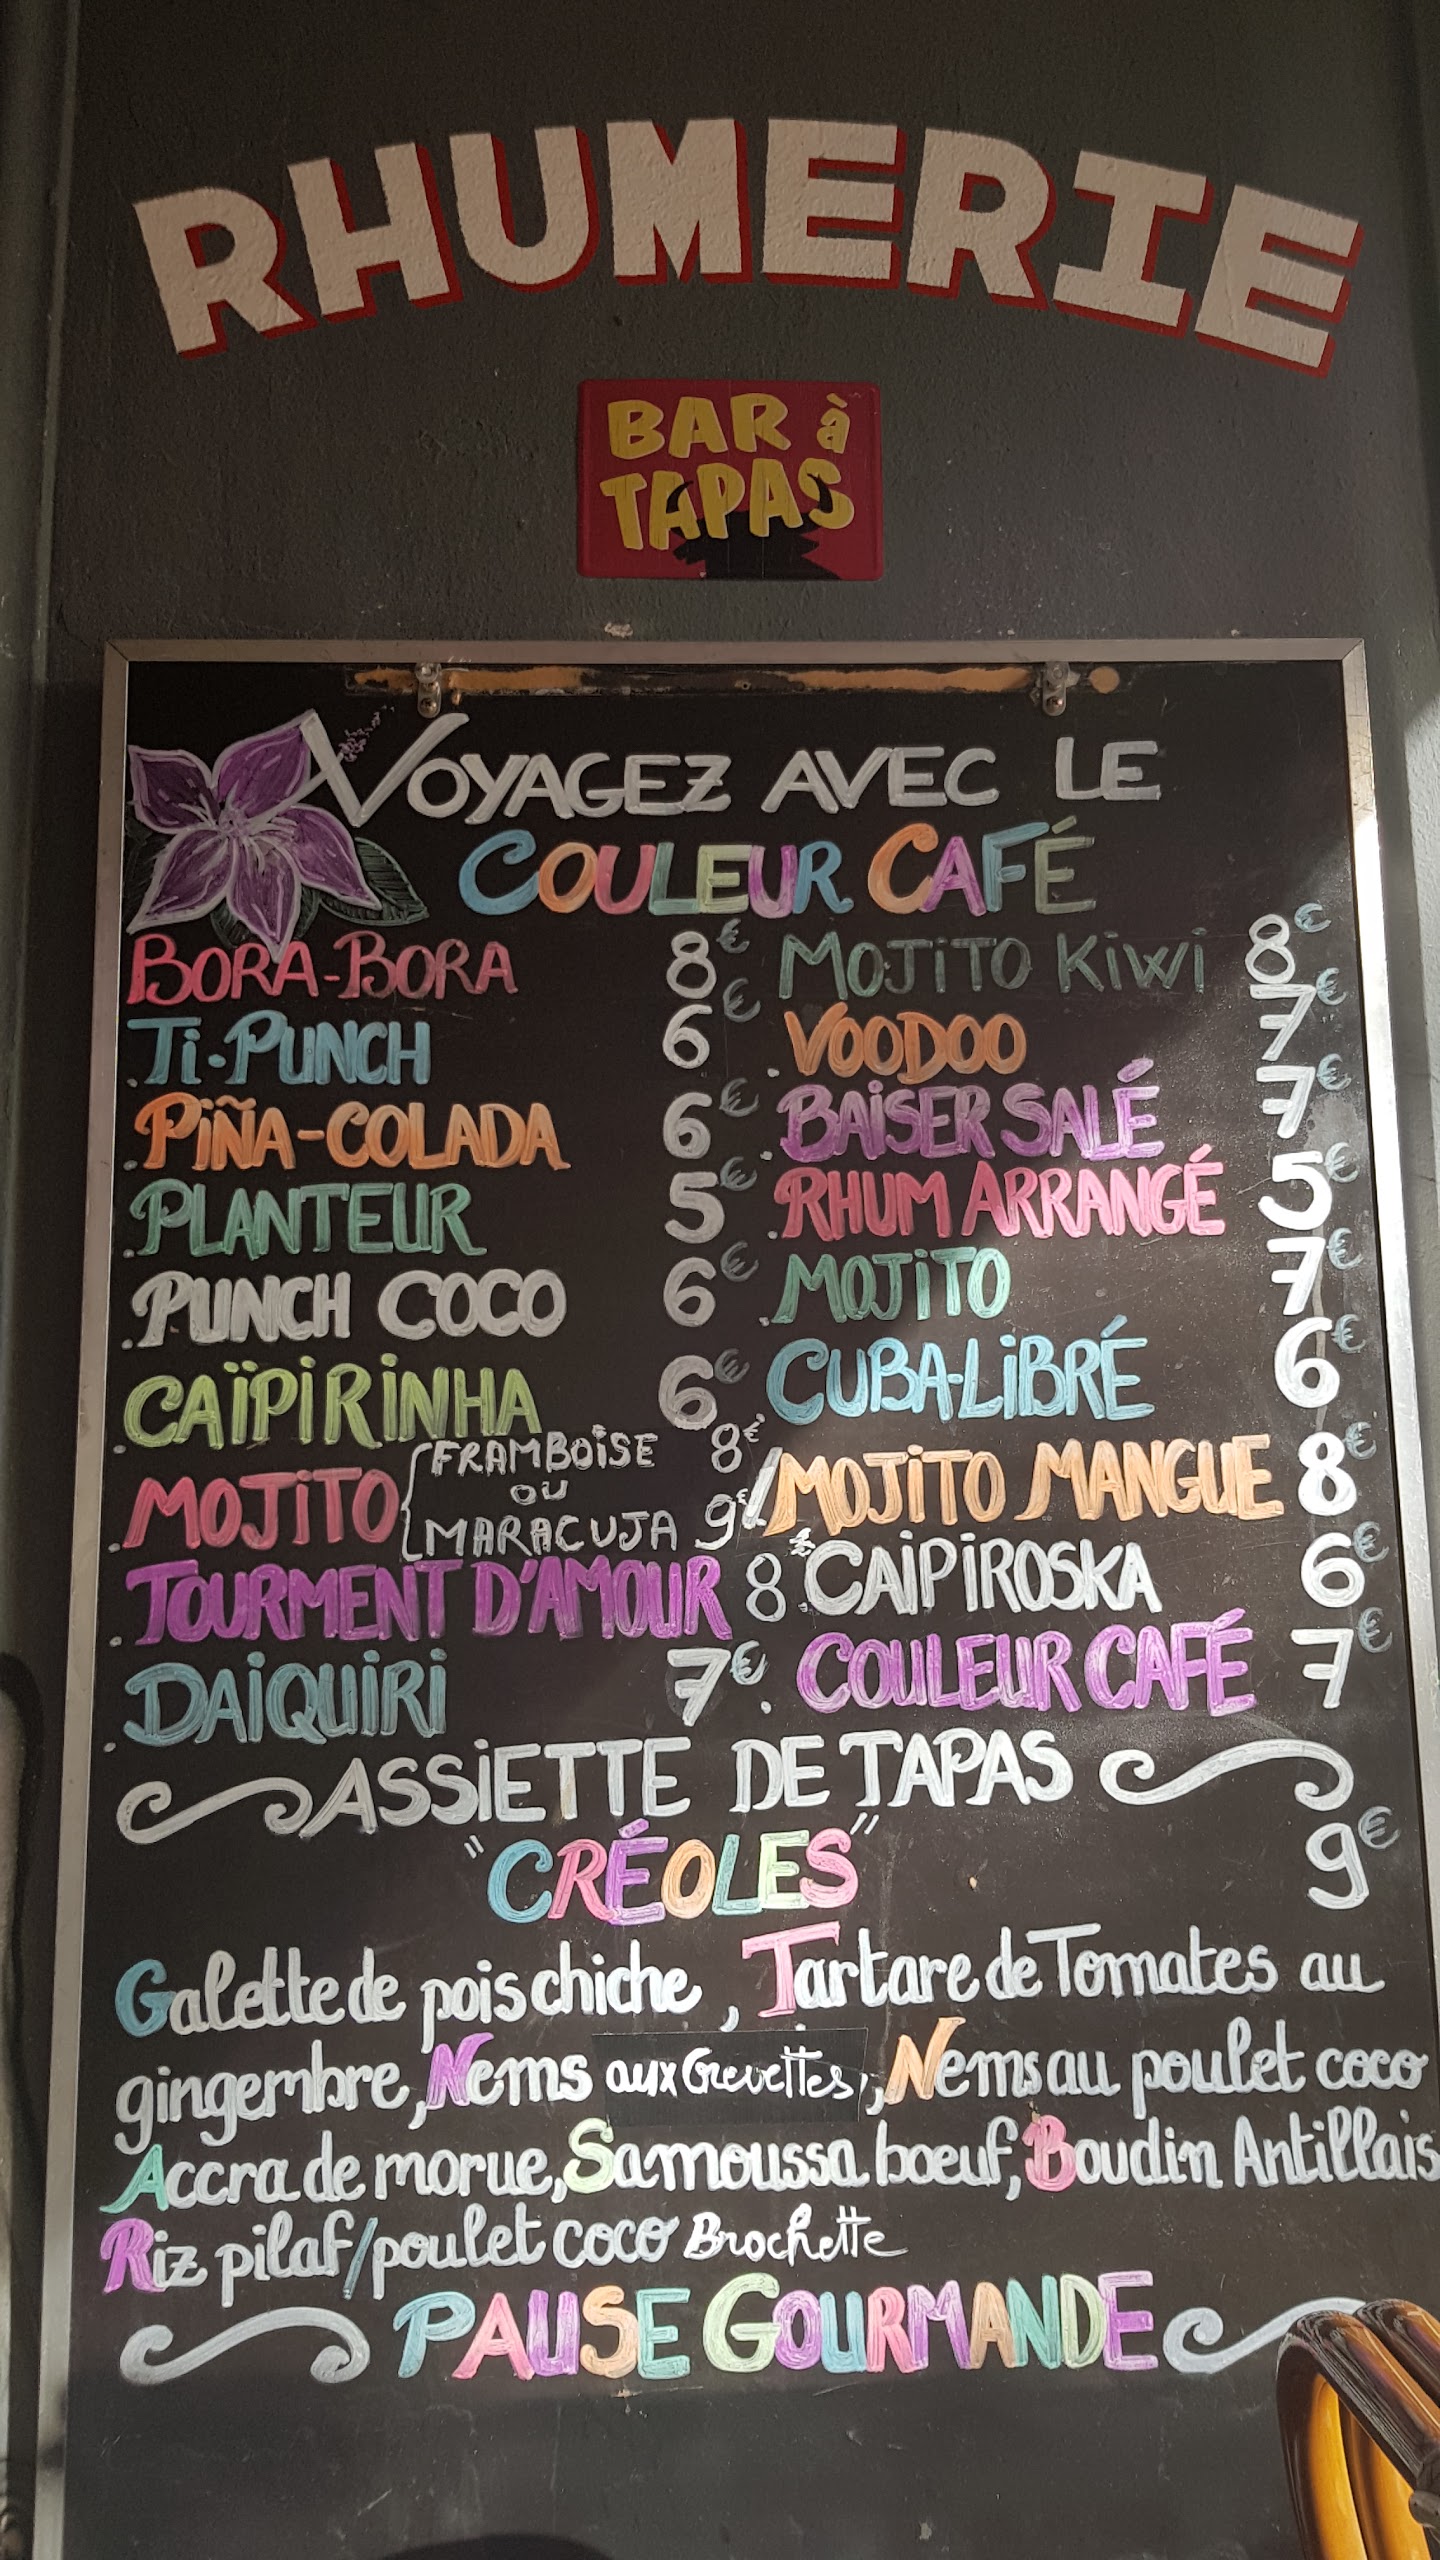 RHUMERIE
BAR à
TAPAS
VOYAGEZ AVEC LE
COULEUR CAFÉ
BORA-BORA 8€ MOJITO KIWI 8€
. Ti-PUNCH 6€ . VOODOO 7€
. PIÑA-COLADA 6€ . BAISER SALÉ 7€
. PLANTEUR 5€ . RHUM ARRANGÉ 5€
. PUNCH COCO 6€ . MOJITO 7€
. CAÏPIRINHA 6€ CUBA-LIBRÉ 6€
. MOJITO FRAMBOISE 8€
OU
MARACUJA 9€
MOJITO MANGUE 8€
. TOURMENT D'AMOUR 8€ . CAIPIROSKA 6€
. DAIQUIRI 7€ . COULEUR CAFÉ 7€
ASSIETTE DE TAPAS
"CRÉOLES" 9€
Galette de pois chiche, Tartare de Tomates au
gingembre, Nems aux Crevettes, Nems au poulet coco
Accra de morue, Samoussa boeuf, Boudin Antillais
Riz pilaf/poulet coco Brochette
PAUSE GOURMANDE